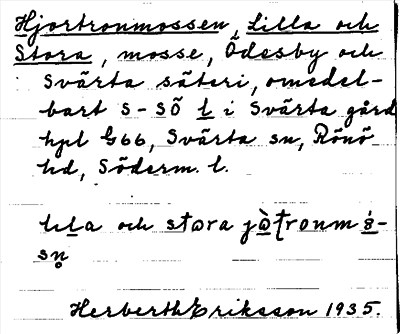 Hjortronmossen, Lilla och
Stora, mosse, Ödesby och
Svärta säteri, omedel-
bart S-SÖ l i Svärta gård
hpl G66, Svärta sn, Rönö
hd, Söderm. l.
lila och stora jòtronm s̀-
sn̥
Herberth Eriksson 1935.